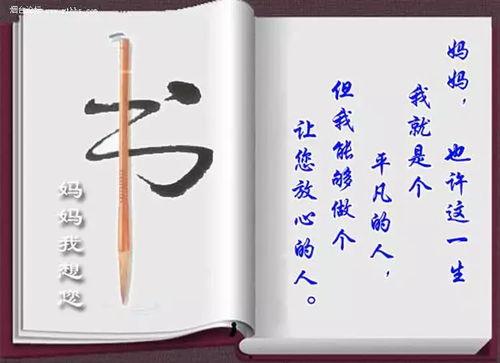 烟台论坛
书
妈妈我想您
妈妈，也许这一生
我就是个
平凡的人，
但我能够做个
让您放心的人。